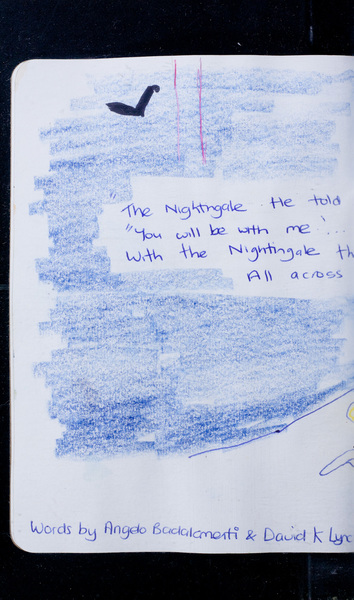 "The Nightngale He told
"You will be with me'...
With the Nightingale th
All across
Words by Angelo Badalamenti & David K Lync